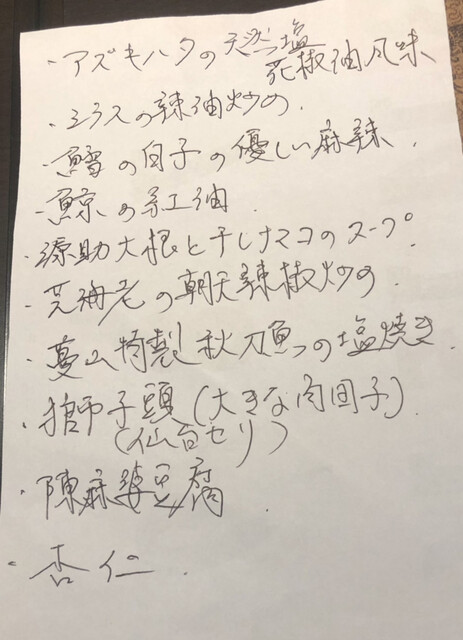 ・アズキハタの天然塩
花椒油風味
・シラスの辣油炒め.
・鱈の白子の優しい麻辣.
・鯨の紅油
・源助大根と干しナマコのスープ
・芝海老の朝天辣椒炒め
・夢山特製秋刀魚の塩焼き
・獅子頭(大きな肉団子)
(仙台セリ)
・陳麻婆豆腐
・杏仁.